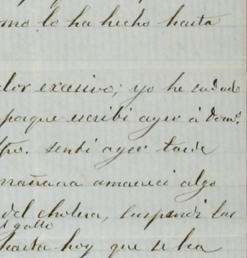 mo lo ha hecho hasta
lor excesivo; yo he sudado
porque escribí ayer á Dom.
sentí ayer tarde
mañana amanecí algo
del cholera, suspendí las
el gallo
hasta hoy que se lea